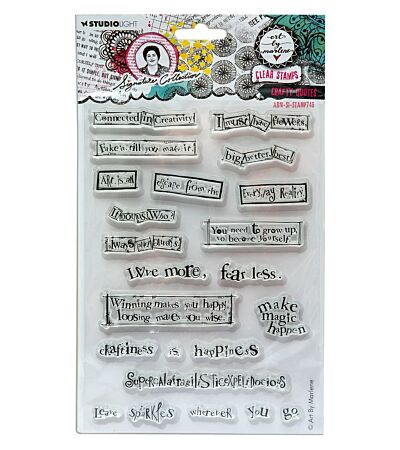 STUDIOLIGHT
art by marlene
Signature Collection
CLEAR STAMPS
CRAFTY QUOTES
ABM-SI-STAMP746
Connected in Creativity!
I must have flowers.
Fake it, till you make it!
big better best!
Art is an
escape from the
Everyday Reality
You need to grow up,
so become yourself.
Always and plurals
Love more, fear less.
Winning makes you happy,
loosing makes you wise.
make
magic
happen
craftiness is happiness
Leave sparkles wherever you go
© Art By Marlene